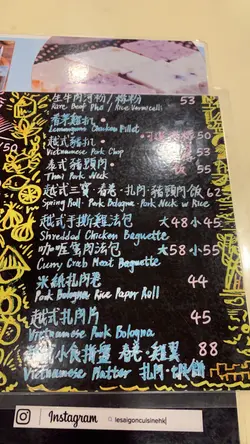 生牛肉河粉/檬粉 53
Rare Beef Pho / Rice Vermicelli
香茅雞扒
Lemongrass Chicken Fillet
越式豬扒 50
Vietnamese Pork Chop
泰式豬頸肉 55
Thai Pork Neck
越式三寶 春卷·扎肉·豬頸肉飯 62
Spring Roll· Pork Bologna· Pork Neck w Rice
越式手撕雞法包 大48小45
Shredded Chicken Baguette
咖喱蟹肉法包 大58小55
Curry Crab Meat Baguette
米紙扎肉卷 44
Pork Bologna Rice Paper Roll
越式扎肉片 45
Vietnamese Pork Bologna
小食拼盤 春卷·雞翼 88
Vietnamese Platter 扎肉·蝦餅
Instagram lesaigoncuisinehk